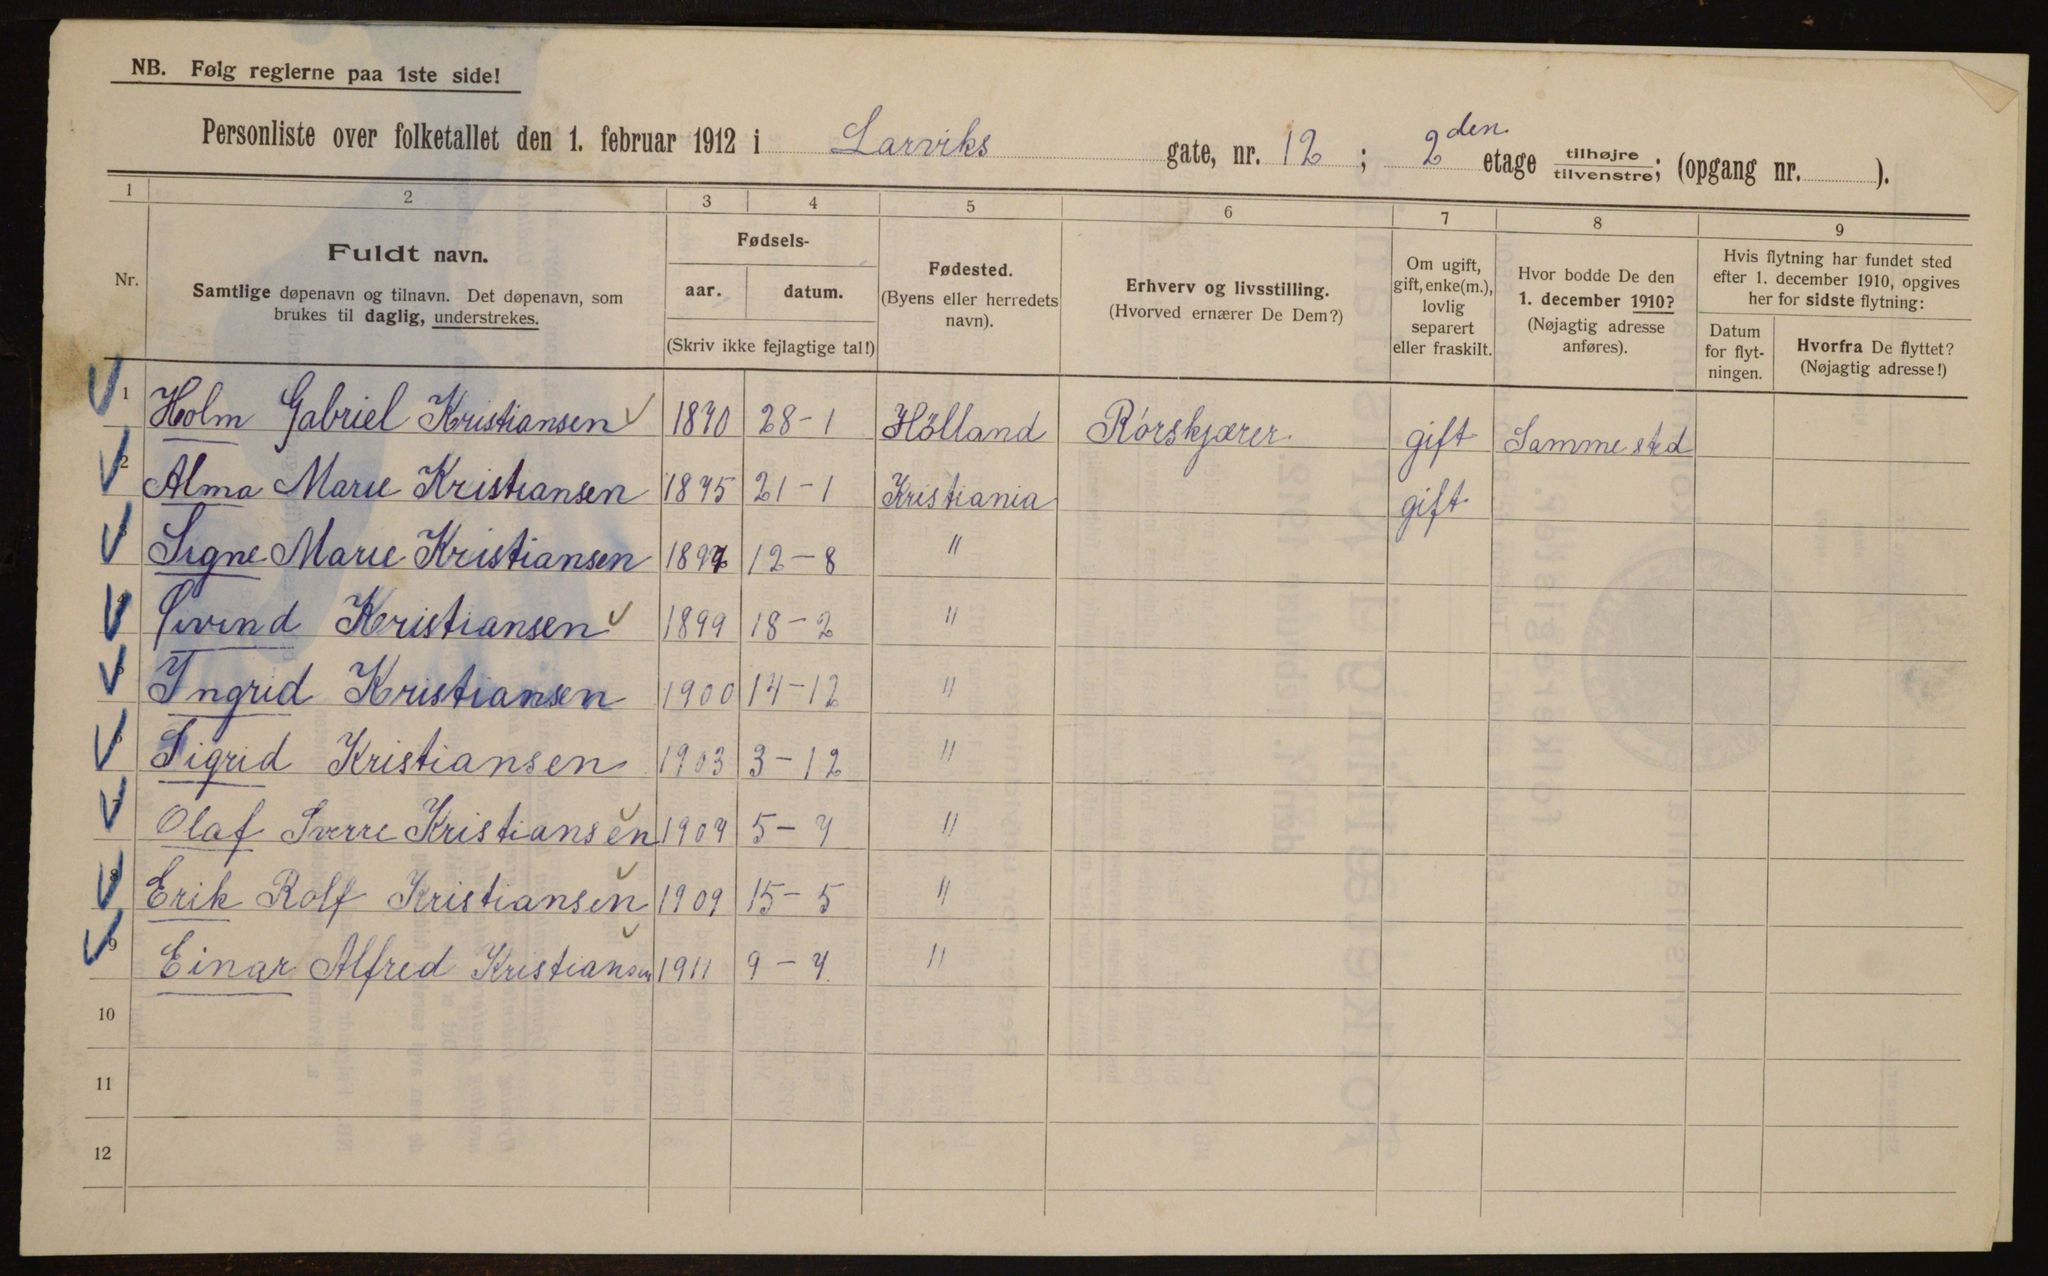 NB. Følg reglerne paa 1ste side!
Personliste over folketallet den 1. februar 1912 i Larviks gate, nr. 12; 2den etage tilhøjre/tilvenstre; (opgang nr. ).
1 2 3 4 5 6 7 8 9
Nr.
Fuldt navn.
Samtlige døpenavn og tilnavn. Det døpenavn, som
brukes til daglig, understrekes.
Fødsels-
aar. datum.
(Skriv ikke fejlagtige tal!)
Fødested.
(Byens eller herredets
navn).
Erhverv og livsstilling.
(Hvorved ernærer De Dem?)
Om ugift,
gift, enke(m.),
lovlig
separert
eller fraskilt.
Hvor bodde De den
1. december 1910?
(Nøjagtig adresse
anføres).
Hvis flytning har fundet sted
efter 1. december 1910, opgives
her for sidste flytning:
Datum
for flyt-
ningen.
Hvorfra De flyttet?
(Nøjagtig adresse!)
1 Holm Gabriel Kristiansen 1870 28-1 Hölland Rórskjærer gift Samme sted
2 Alma Marie Kristiansen 1875 21-1 Kristiania gift
3 Signe Marie Kristiansen 12-8 "
4 Øivind Kristiansen 1899 18-2 "
5 Yngrid Kristiansen 1900 14-12 "
6 Sigrid Kristiansen 1903 3-12 "
7 Olaf Sverre Kristiansen 1907 5-7 "
8 Erik Rolf Kristiansen 1909 15-5 "
9 Einar Alfred Kristiansen 1911 9-7. "
10
11
12